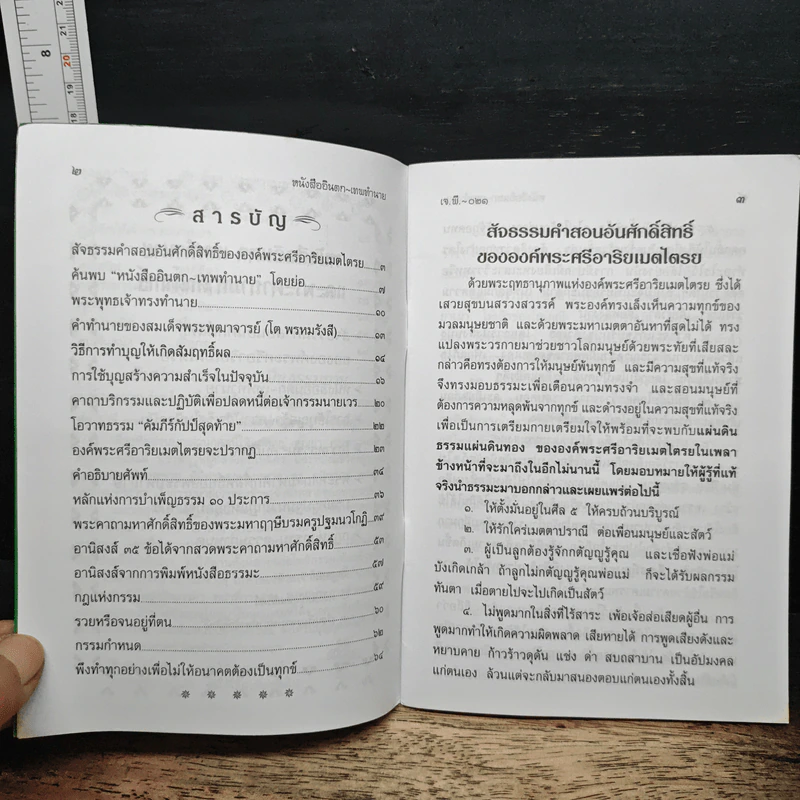 8
21
20
19
๒
หนังสืออินตก~เทพทำนาย
สารบัญ
สัจธรรมคำสอนอันศักดิ์สิทธิ์ขององค์พระศรีอาริยเมตไตรย ๓
ค้นพบ “หนังสืออินตก~เทพทำนาย” โดยย่อ ๗
พระพุทธเจ้าทรงทำนาย ๑๐
คำทำนายของสมเด็จพระพุฒาจารย์ (โต พรหมรังสี) ๑๓
วิธีการทำบุญให้เกิดสัมฤทธิ์ผล ๑๔
การใช้บุญสร้างความสำเร็จในปัจจุบัน ๑๖
คาถาบริกรรมและปฏิบัติเพื่อปลดหนี้ต่อเจ้ากรรมนายเวร ๒๐
โอวาทธรรม “คัมภีร์กัปป์สุดท้าย” ๒๒
องค์พระศรีอาริยเมตไตรยจะปรากฏ ๒๓
คำอธิบายศัพท์ ๓๔
หลักแห่งการบำเพ็ญธรรม ๑๐ ประการ ๓๖
พระคาถามหาศักดิ์สิทธิ์ของพระมหาฤๅษีบรมครูปฐมนวโกฏิ ๓๙
อานิสงส์ ๓๕ ข้อได้จากสวดพระคาถามหาศักดิ์สิทธิ์ ๕๓
อานิสงส์จากการพิมพ์หนังสือธรรมะ ๕๗
กฎแห่งกรรม ๕๙
รวยหรือจนอยู่ที่ตน ๖๐
กรรมกำหนด ๖๒
พึงทำทุกอย่างเพื่อไม่ให้อนาคตต้องเป็นทุกข์ ๖๔
เจ.พี.~๐๒๑
๓
สัจธรรมคำสอนอันศักดิ์สิทธิ์
ขององค์พระศรีอาริยเมตไตรย
ด้วยพระฤทธานุภาพแห่งองค์พระศรีอาริยเมตไตรย ซึ่งได้
เสวยสุขบนสรวงสวรรค์ พระองค์ทรงเล็งเห็นความทุกข์ของ
มวลมนุษยชาติ และด้วยพระมหาเมตตาอันหาที่สุดไม่ได้ ทรง
แปลงพระวรกายมาช่วยชาวโลกมนุษย์ด้วยพระทัยที่เสียสละ
กล่าวคือทรงต้องการให้มนุษย์พ้นทุกข์ และมีความสุขที่แท้จริง
จึงทรงมอบธรรมะเพื่อเตือนความทรงจำ และสอนมนุษย์ที่
ต้องการความหลุดพ้นจากทุกข์ และดำรงอยู่ในความสุขที่แท้จริง
เพื่อเป็นการเตรียมกายเตรียมใจให้พร้อมที่จะพบกับแผ่นดิน
ธรรมแผ่นดินทอง ขององค์พระศรีอาริยเมตไตรยในเพลา
ข้างหน้าที่จะมาถึงในอีกไม่นานนี้ โดยมอบหมายให้ผู้รู้ที่แท้
จริงนำธรรมะมาบอกกล่าวและเผยแพร่ต่อไปนี้
๑. ให้ตั้งมั่นอยู่ในศีล ๕ ให้ครบถ้วนบริบูรณ์
๒. ให้รักใคร่เมตตาปราณี ต่อเพื่อนมนุษย์และสัตว์
๓. ผู้เป็นลูกต้องรู้จักกตัญญูรู้คุณ และเชื่อฟังพ่อแม่
บังเกิดเกล้า ถ้าลูกไม่กตัญญูรู้คุณพ่อแม่ ก็จะได้รับผลกรรม
ทันตา เมื่อตายไปจะไปเกิดเป็นสัตว์
๔. ไม่พูดมากในสิ่งที่ไร้สาระ เพ้อเจ้อส่อเสียดผู้อื่น การ
พูดมากทำให้เกิดความผิดพลาด เสียหายได้ การพูดเสียงดังและ
หยาบคาย ก้าวร้าวดุดัน แช่ง ด่า สบถสาบาน เป็นอัปมงคล
แก่ตนเอง ล้วนแต่จะกลับมาสนองตอบแก่ตนเองทั้งสิ้น